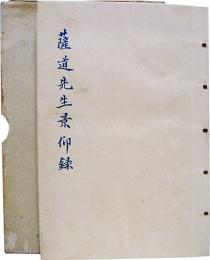 薩道先生景仰録